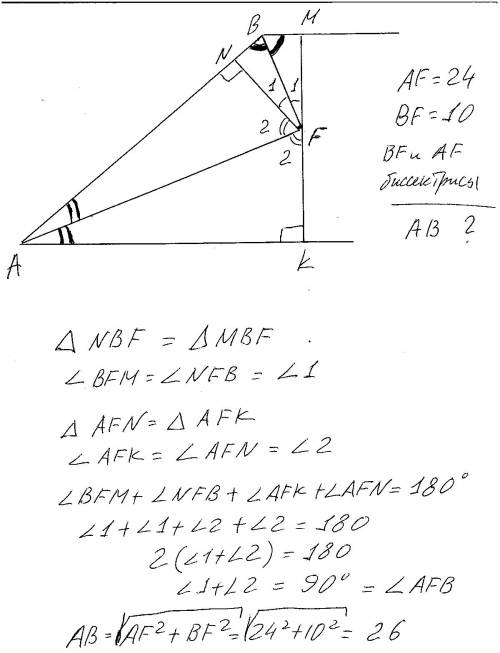 B M
N
1 1
2 F
2
A K
AF = 24
BF = 10
BF и AF
биссектрисы
AB ?
△ NBF = △ MBF .
∠ BFM = ∠ NFB = ∠ 1
△ AFN = △ AFK
∠ AFK = ∠ AFN = ∠ 2
∠BFM + ∠NFB + ∠AFK + ∠AFN = 180°
∠1 + ∠1 + ∠2 + ∠2 = 180
2 (∠1 + ∠2) = 180
∠1 + ∠2 = 90° = ∠AFB
AB = √AF² + BF² = √24² + 10² = 26